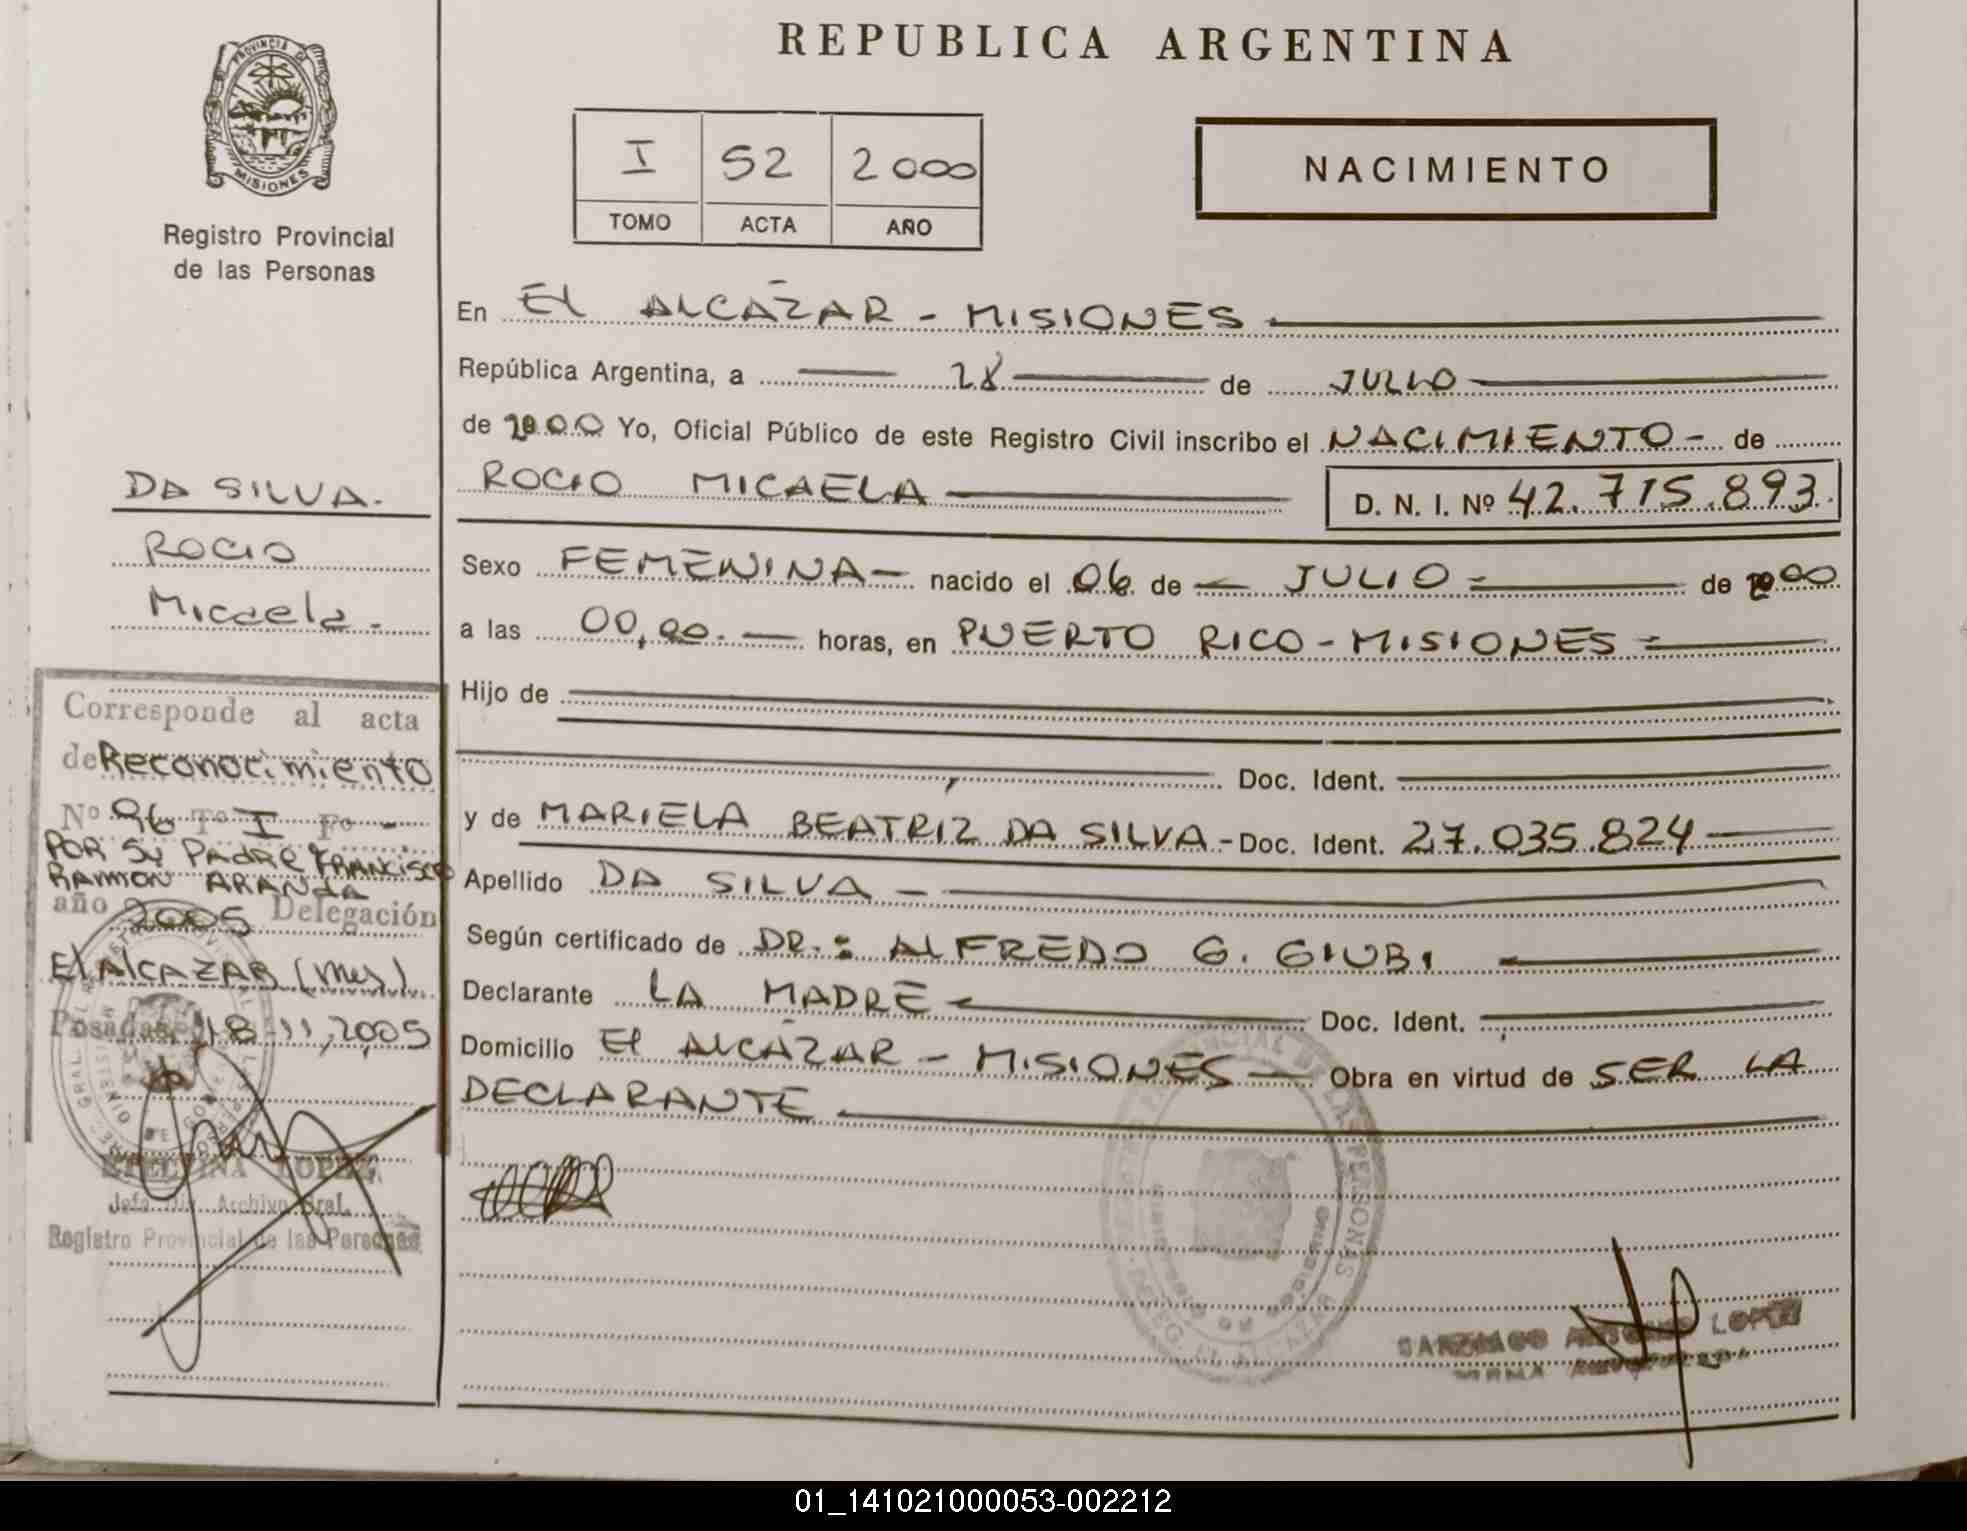 REPUBLICA ARGENTINA
PROVINCIA DE
MISIONES
Registro Provincial
de las Personas
I 52 2000
TOMO ACTA AÑO
NACIMIENTO
En EL ALCAZAR - MISIONES
República Argentina, a 28 de JULIO
de 2000 Yo, Oficial Público de este Registro Civil inscribo el NACIMIENTO - de
ROCIO MICAELA D. N. I. Nº 42.715.893.
Sexo FEMENINA - nacido el 06 de JULIO de 2000
a las 00,00. horas, en PUERTO RICO - MISIONES
Hijo de
Doc. Ident.
y de MARIELA BEATRIZ DA SILVA - Doc. Ident. 27.035.824
Apellido DA SILVA
Según certificado de DR.: ALFREDO G. GIUBI
Declarante LA MADRE Doc. Ident.
Domicilio El ALCAZAR - MISIONES Obra en virtud de SER LA
DECLARANTE
DA SILVA.
ROCIO
Micaela.
Corresponde al acta
de Reconocimiento
Nº 96 Tº I Fº -
POR SU PADRE FRANCISCO
RAMON ARANDA
año 2005 Delegación
El AlCAZAR (Mnes).
Posadas, 18-11,2005
LOPEZ
Jefa Div. Archivo Gral.
Registro Provincial de las Personas
DELEG. EL ALCAZAR
ANTONIO LOPEZ
01_141021000053-002212